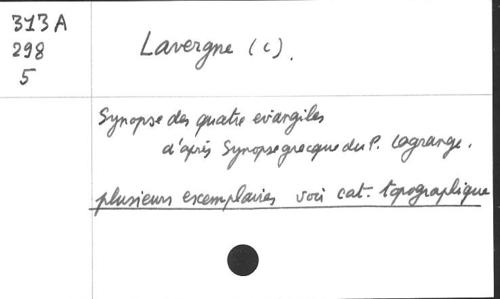 313A
298
5
Lavergne (C).
Synopse des quatre évangiles
d'après Synopse grecque du P. Lagrange.
plusieurs exemplaires voir cat. topographique